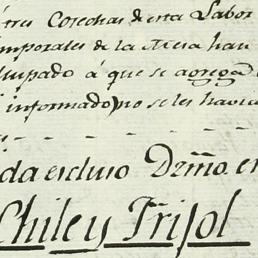 tres Cosechas de esta Labor
temporales de la Mesa han
Culpado á que se agrega
informado) no se les havia
da escluso Dzmo. en
Chile y Frisol